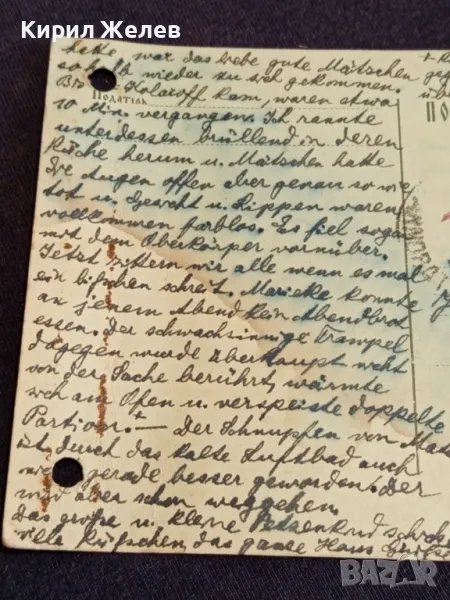 Кирил Желев
hatte, war das liebe gute Mätschen
so halb wieder zu sich gekommen.
Bis Kolaroff kam, waren etwa
Податѣль
10 Min. vergangen. Ich rannte
unterdessen brüllend in deren
Küche herum u. Mätschen hatte
die Augen offen aber genau so wie
tot u. Gesicht u. Lippen waren
vollkommen farblos. Es fiel sogar
mit dem Oberkörper vornüber.
Jetzt zittern wir alle wenn es mal
ein bißchen schreit. Marieke konnte
an jenem Abend kein Abendbrot
essen. Der schwachsinnige Trampel
dagegen wurde überhaupt nicht
von der Sache berührt, wärmte
sich am Ofen u. verspeiste doppelte
Portion. — Der Schnupfen von Mats
ist durch das kalte Luftbad auch
nicht gerade besser geworden. Der
wird aber schon weggehen.
Das große u. kleine schick
viele Küßchen, das ganze Haus
ПО
bazar.bg